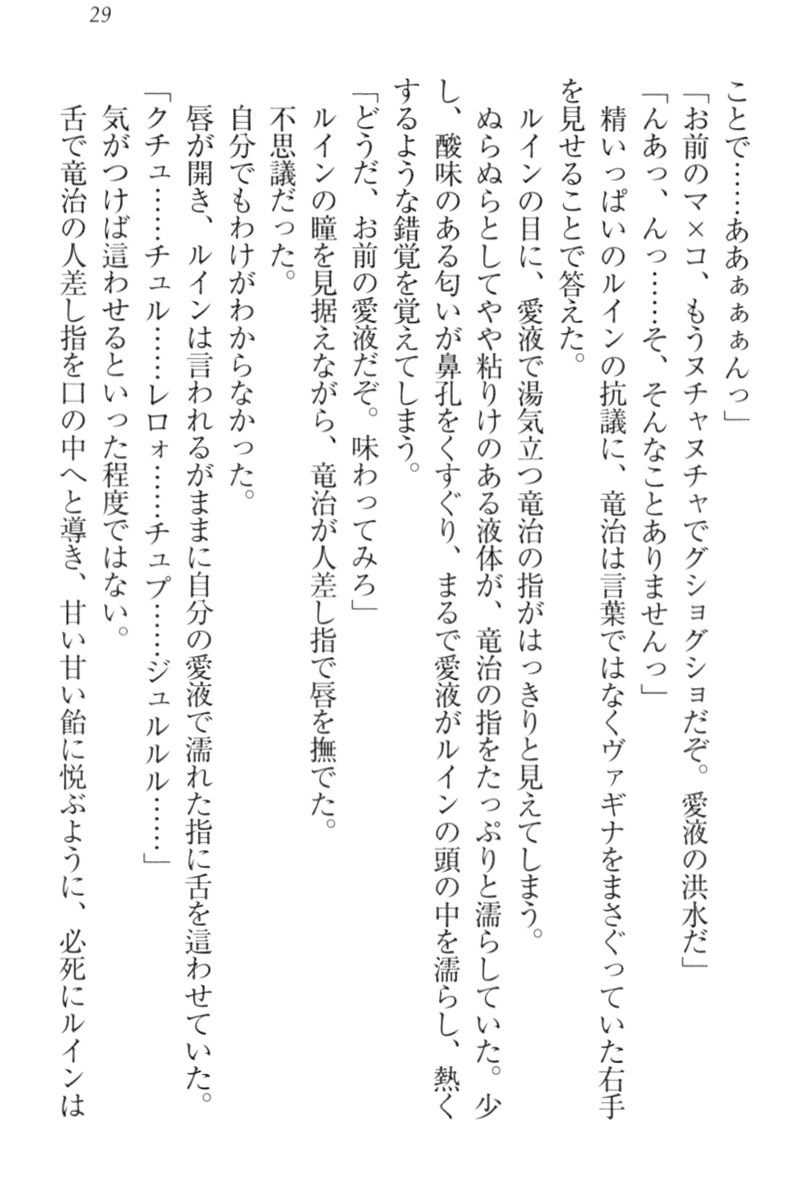 29
ことで……ああぁぁぁんっ」
「お前のマ×コ、もうヌチャヌチャでグショグショだぞ。愛液の洪水だ」
「んあっ、んっ……そ、そんなことありませんっ」
精いっぱいのルインの抗議に、竜治は言葉ではなくヴァギナをまさぐっていた右手
を見せることで答えた。
ルインの目に、愛液で湯気立つ竜治の指がはっきりと見えてしまう。
ぬらぬらとしてやや粘りけのある液体が、竜治の指をたっぷりと濡らしていた。少
し、酸味のある匂いが鼻孔をくすぐり、まるで愛液がルインの頭の中を濡らし、熱く
するような錯覚を覚えてしまう。
「どうだ、お前の愛液だぞ。味わってみろ」
ルインの瞳を見据えながら、竜治が人差し指で唇を撫でた。
不思議だった。
自分でもわけがわからなかった。
唇が開き、ルインは言われるがままに自分の愛液で濡れた指に舌を這わせていた。
「クチュ……チュル……レロォ……チュプ……ジュルルル……」
気がつけば這わせるといった程度ではない。
舌で竜治の人差し指を口の中へと導き、甘い甘い飴に悦ぶように、必死にルインは